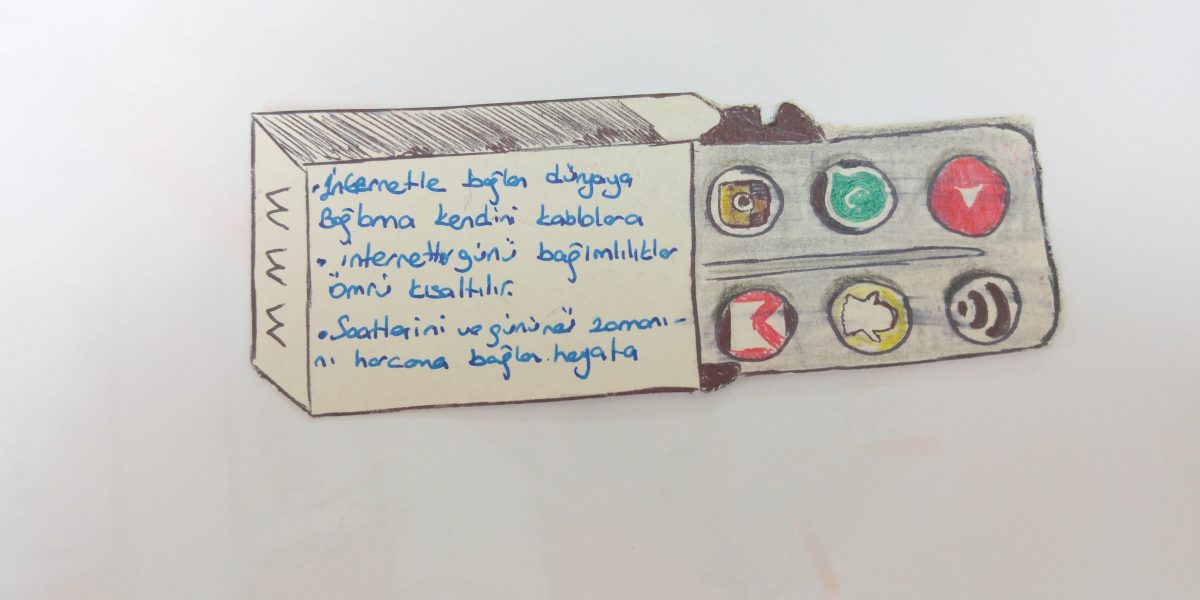 • İnternetle bağlan dünyaya
Bağlama kendini kablolara
• internetter günü bağımlılıklar
Ömrü kısaltılır.
• Saatlerini ve gününü zamanı-
nı harcama bağlan hayata
www